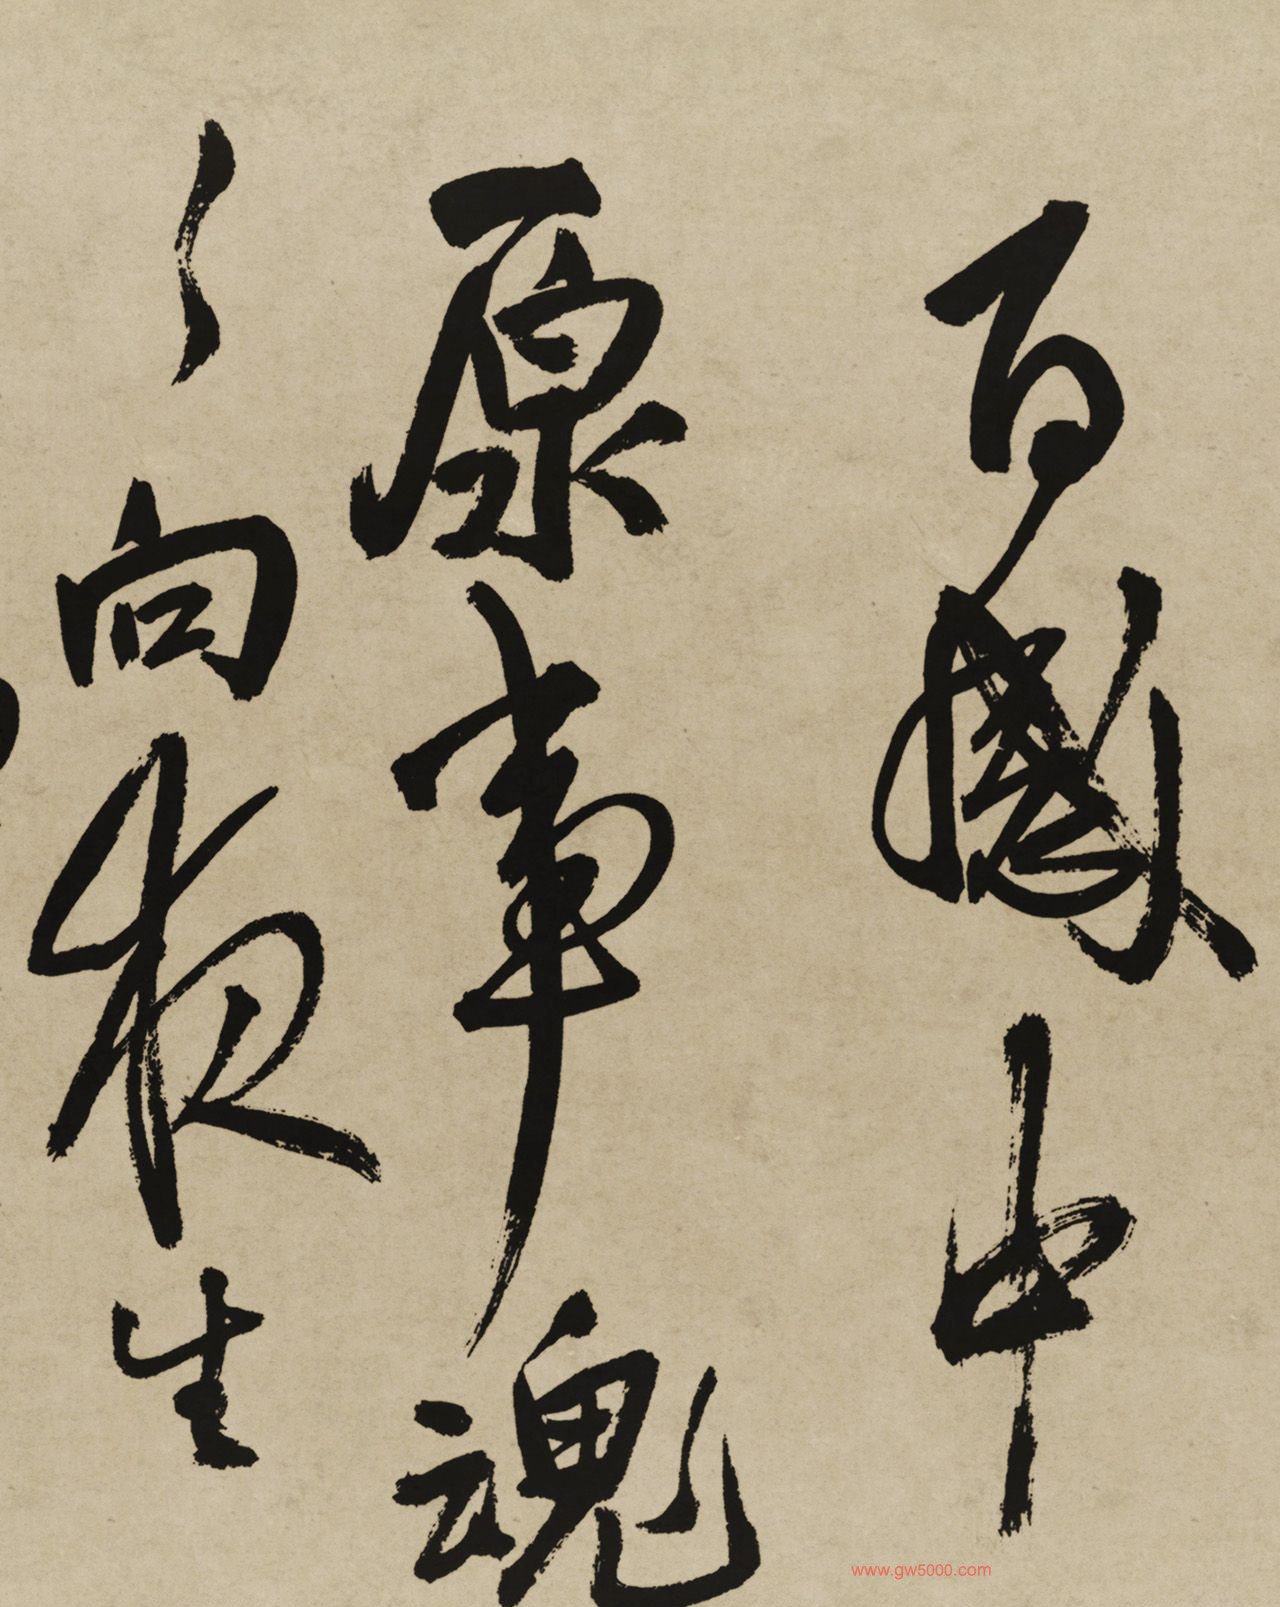 百中
原事魂
〻向夜生
www.gw5000.com